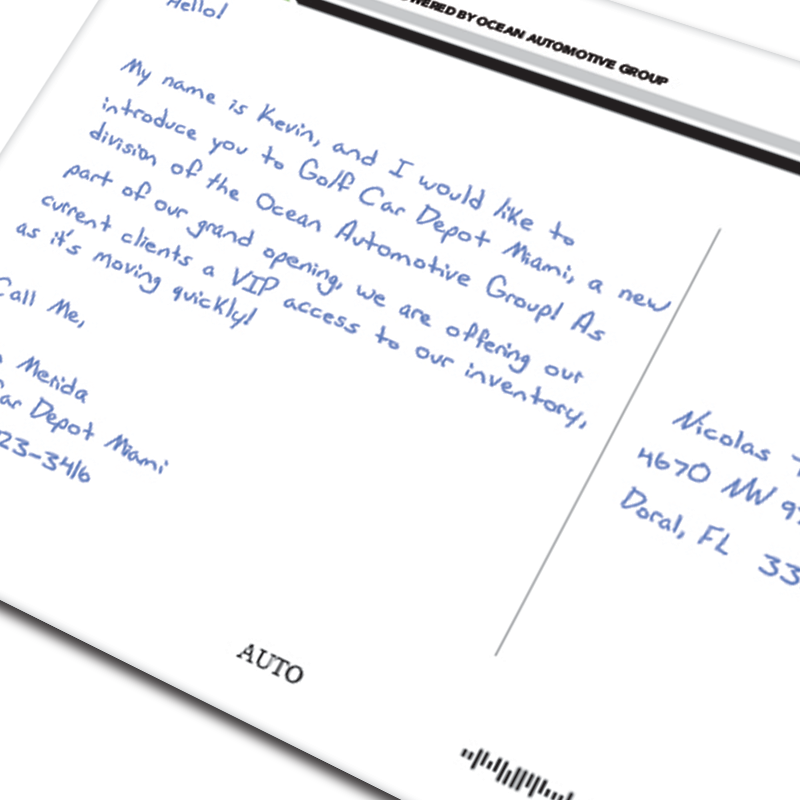 POWERED BY OCEAN AUTOMOTIVE GROUP
Hello!
My name is Kevin, and I would like to
introduce you to Golf Car Depot Miami, a new
division of the Ocean Automotive Group! As
part of our grand opening, we are offering our
current clients a VIP access to our inventory,
as it's moving quickly!
Call Me,
Merida
Car Depot Miami
23-3416
Nicolas
4670 NW
Doral, FL 33
AUTO